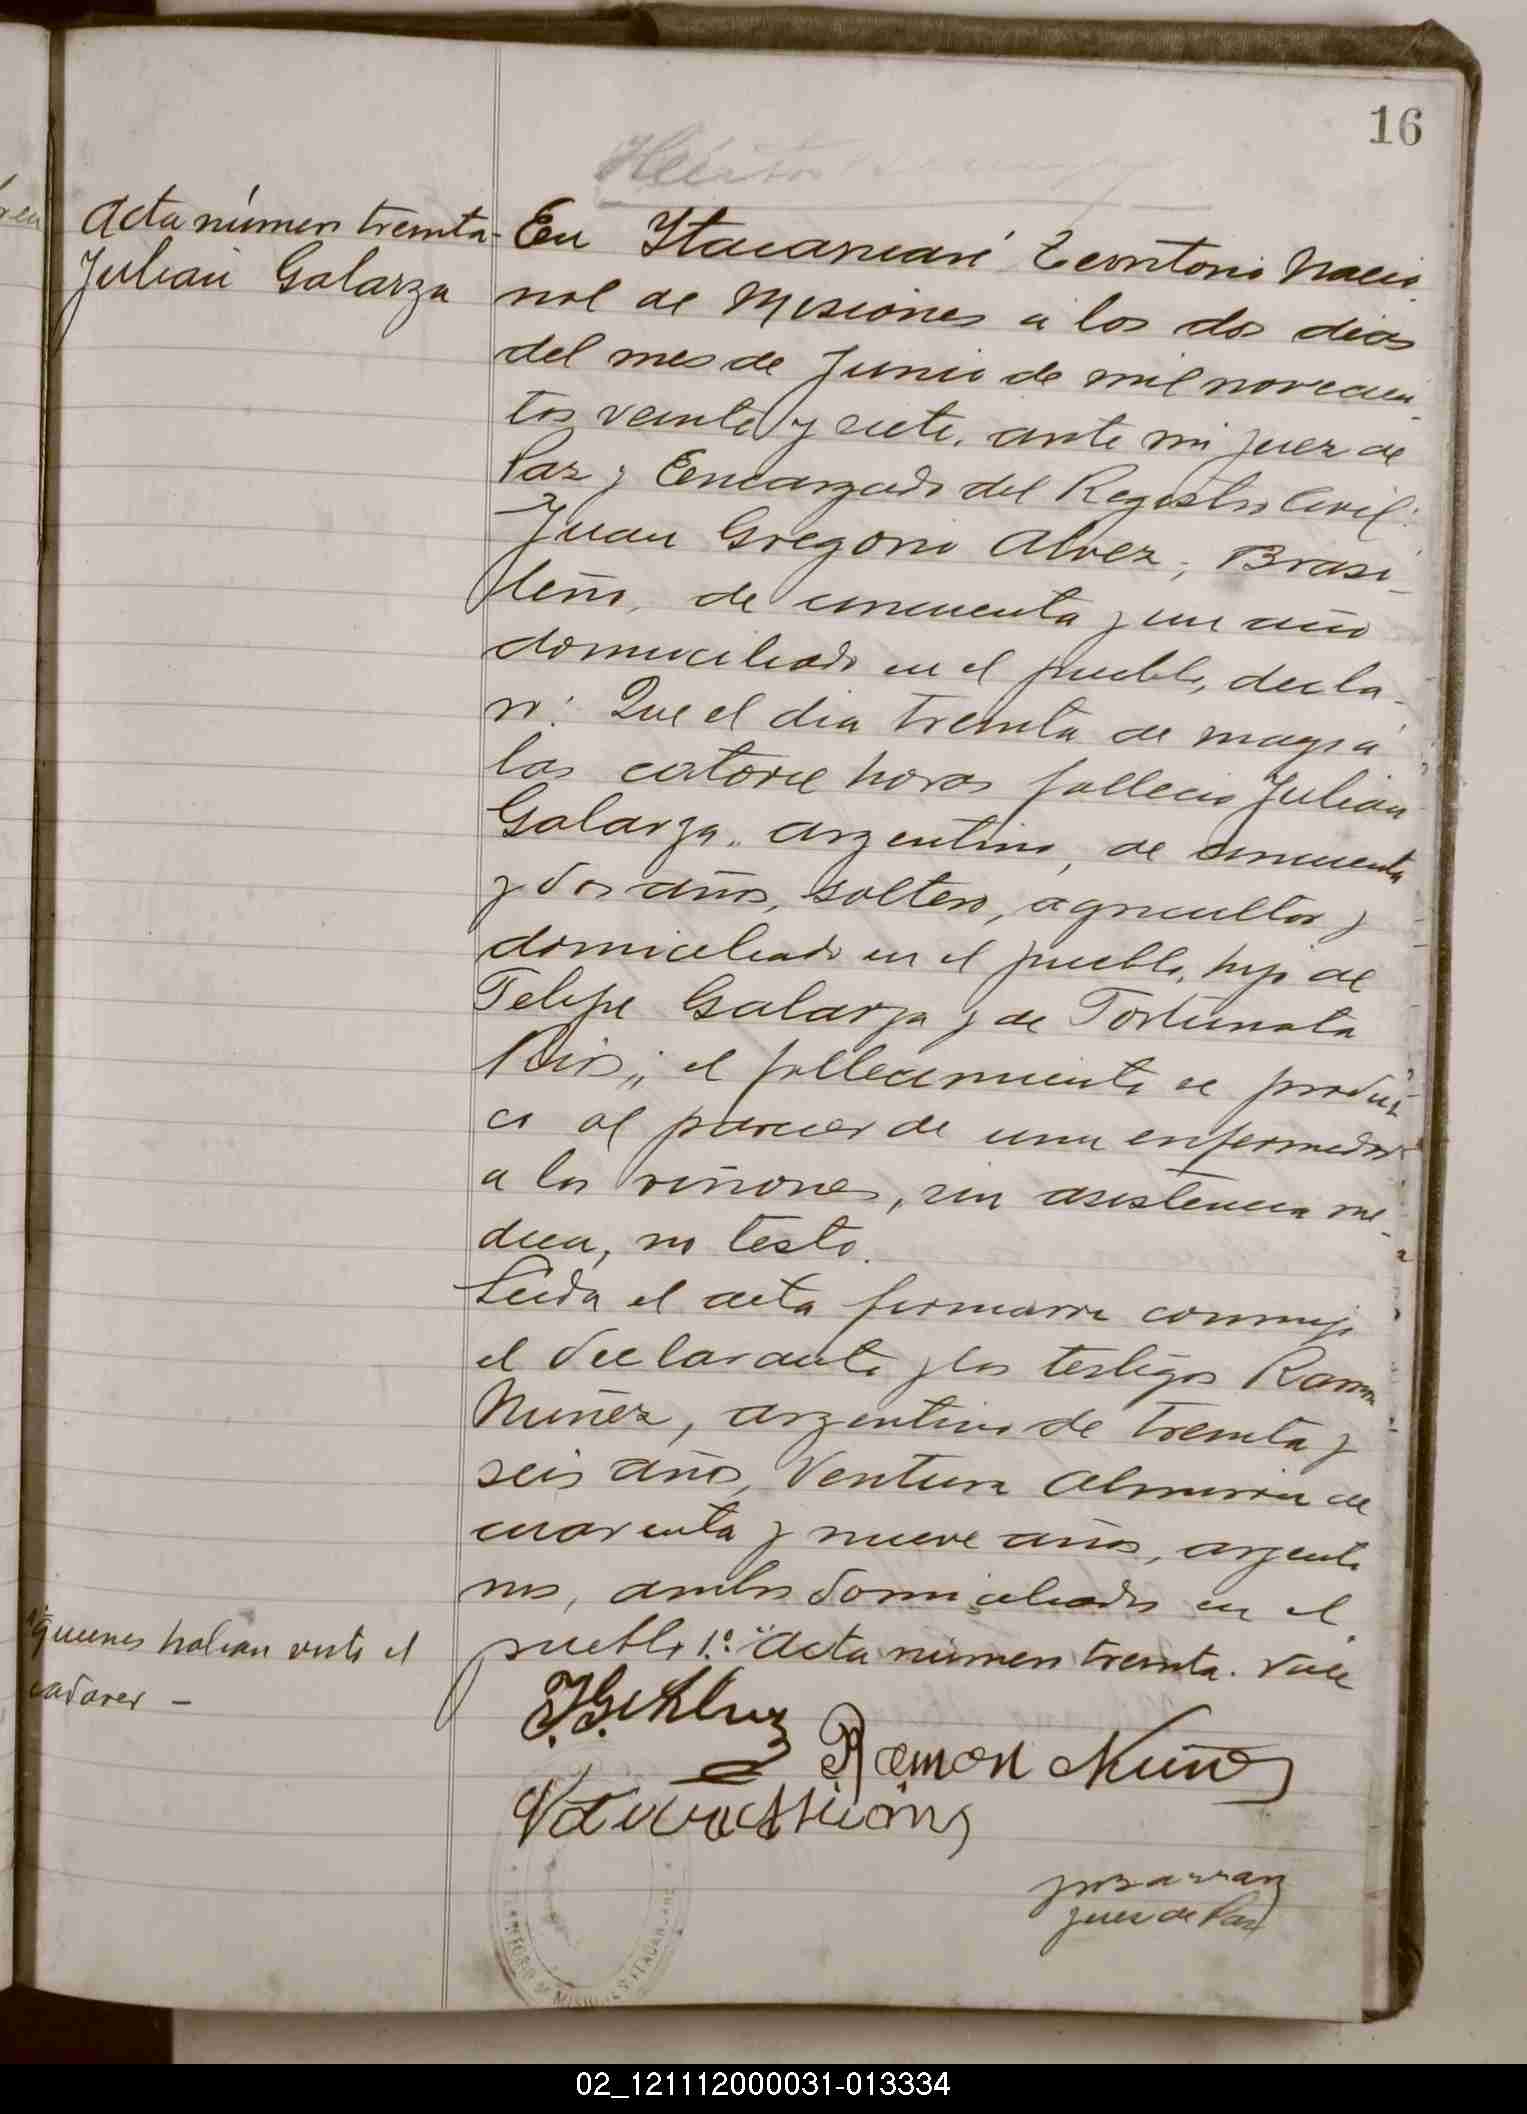 16
Acta número treinta
Julian Galarza
En Itacaruaré Territorio Nacio
nal de Misiones a los dos dias
del mes de Junio de mil novecien
tos veinte y siete, ante mi Juez de
Paz y Encargado del Registro Civil:
Juan Gregorio Alvez, Brasi
leño, de cincuenta y un año
domiciliado en el pueblo, decla
ró: Que el dia treinta de mayo á
las catorce horas fallecio Julian
Galarza, argentino, de cincuenta
y dos años, soltero, agricultor y
domiciliado en el pueblo, hijo de
Felipe Galarza y de Fortunata
el fallecimiento se produ
cio al parecer de una enfermedad
a los riñones, sin asistencia me
dica, no testo.
Leida el acta firmaron conmigo
el declarante y los testigos Ramon
Nuñez, argentino de treinta y
seis años, Ventura Almiron de
cuarenta y nueve años, argenti
nos, ambos domiciliados en el
pueblo 1.º Acta número treinta. Vale
quienes habian visto el
cadaver -
Ramon Nuñez
Juez de Paz
TERRITORIO DE MISIONES
02_121112000031-013334